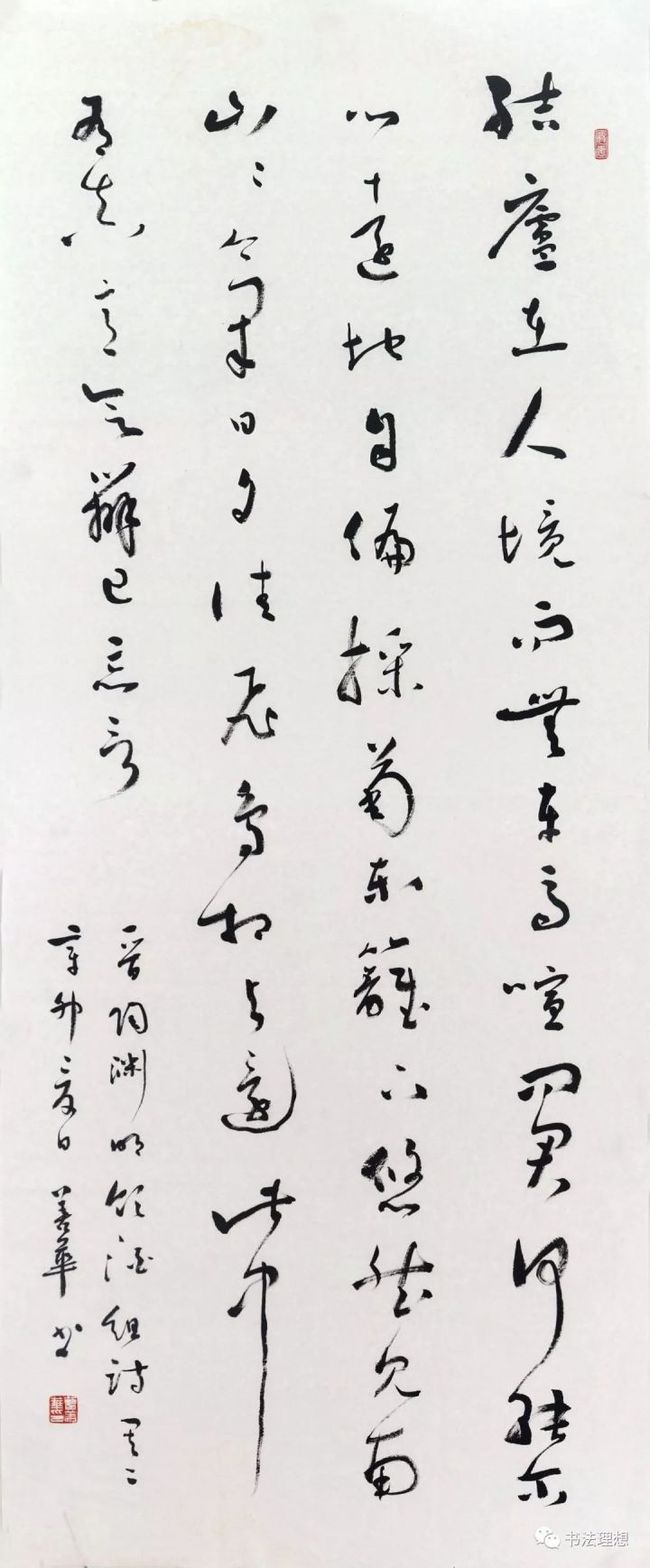 結廬在人境而無車馬喧問君何能尔
心遠地自偏採菊東籬下悠然見南
山〻氣日夕佳飛鳥相與還此中
有真意欲辯已忘言
晋陶渊明飲酒組詩其二
辛卯夏日 善華书
书法理想